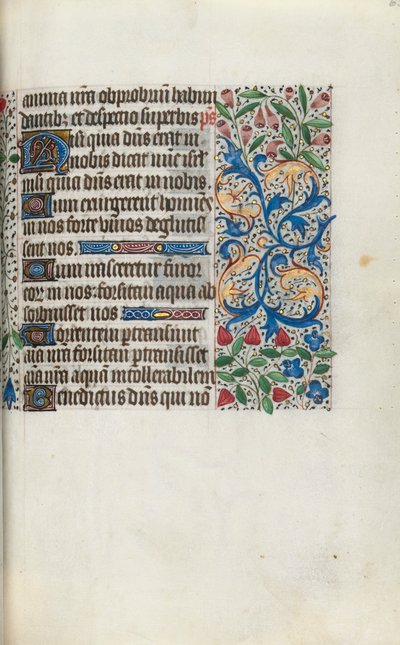 anima nr̄a obprobriū habun
dantibꝫ et despectio superbis ps
Nisi quia dn̄s erat in
nobis dicat nūc isrl̄
nisi quia dn̄s erat in nobis.
Cum exurgerent homines
in nos forte viuos deglutis
sent nos
Cum irasceretur furor
eorꝫ in nos: forsitan aqua ab
sorbuisset nos
Torrentem ꝑtransiuit
aīa nr̄a forsitan ꝑtransisset
aīa nr̄a aquam intollerabilem
Benedictus dn̄s qui nō